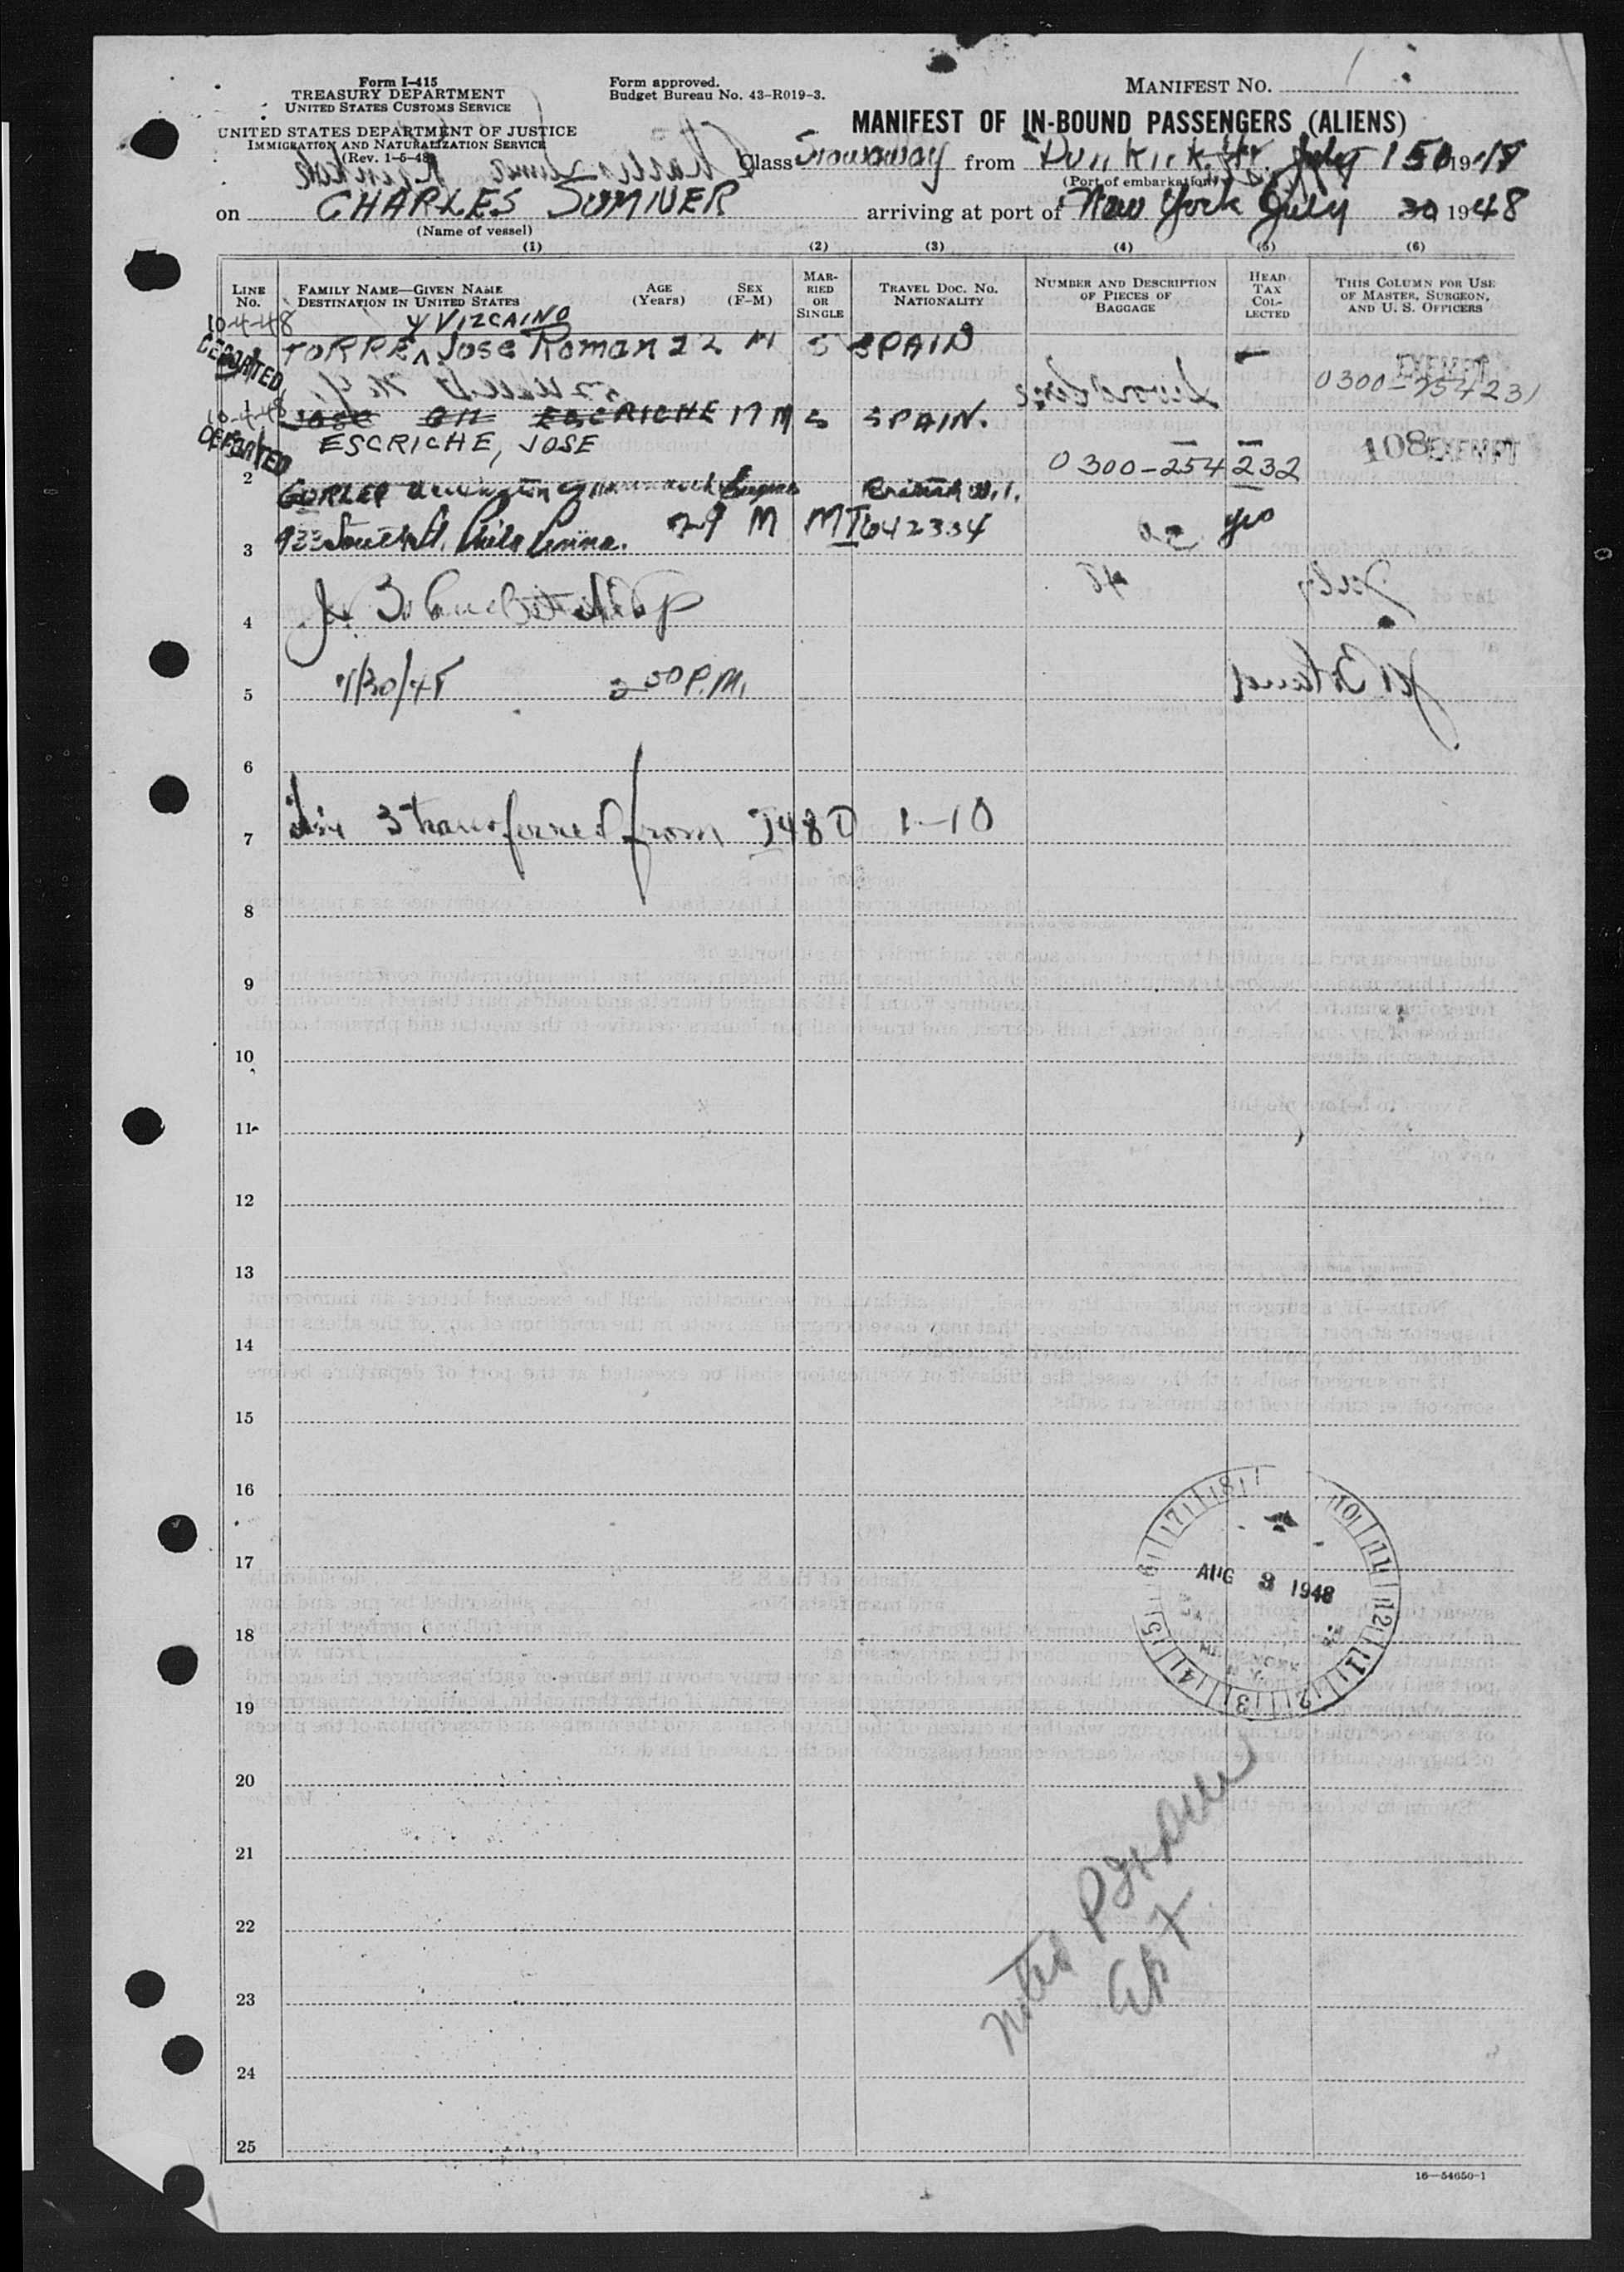 Form I-415
TREASURY DEPARTMENT
UNITED STATES CUSTOMS SERVICE
UNITED STATES DEPARTMENT OF JUSTICE
IMMIGRATION AND NATURALIZATION SERVICE
(Rev. 1-5-48)
Form approved.
Budget Bureau No. 43-R019-3.
MANIFEST NO.
MANIFEST OF IN-BOUND PASSENGERS (ALIENS)
Class Stowaway from Dunkirk, Fr. July 15 1948
(Port of embarkation)
on CHARLES SUMNER arriving at port of New York July 30 1948
(Name of vessel)
(1) (2) (3) (4) (5) (6)
LINE No.
FAMILY NAME—GIVEN NAME
DESTINATION IN UNITED STATES
AGE (Years)
SEX (F-M)
MARRIED OR SINGLE
TRAVEL DOC. NO.
NATIONALITY
NUMBER AND DESCRIPTION OF PIECES OF BAGGAGE
HEAD TAX COLLECTED
THIS COLUMN FOR USE OF MASTER, SURGEON, AND U. S. OFFICERS
10-4-48 Y VIZCAINO
DEPORTED TORRE ^ Jose Roman 22 M S SPAIN —
EXEMPT
1 0300-254231
10-4-48 JOSE ESCRICHE 17 M S SPAIN.
DEPORTED ESCRICHE, JOSE — — 108 EXEMPT
2 0300-254232
British W.I.
3 933 South St. Phila Penna. 29 M M I642334 yes
4
5 7/30/48 2 50 P.M.
6
7 Line 3 transferred from I48D 1-10
8
9
10
11
12
13
14
15
16
17
AUG 3 1948
NEW YORK
N.Y.
18
19
20
21
22
23
noted
24
25
16—54650-1